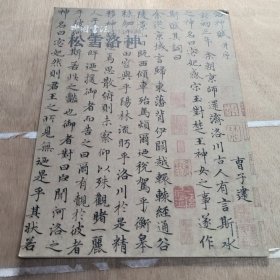 松雪洛神
洛神賦 并序
曹子建
黃初三年余朝京師還濟洛川古人有言斯水
之神名曰宓妃感宋玉對楚王神女之事遂作
斯賦其詞曰
余從京師言歸東藩背伊闕越轘轅經通谷
陵景山日既西傾車殆馬煩爾迺稅駕乎蘅皋
容與乎陽林流眄乎洛川於是精
移神駭忽焉思散俯則未察仰以殊觀睹一麗
之畔迺援御者而告之曰爾有覿於彼者
斯若此之艷也御者對曰臣聞河洛之
神名曰宓妃然則君王之所見無迺是乎其狀若